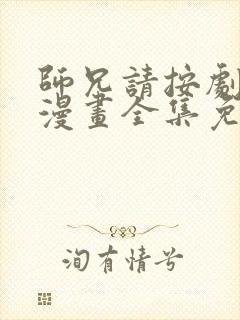 師兄請按劇
漫畫全集免
洵有情兮